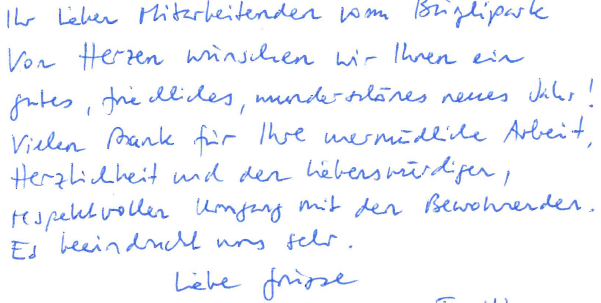 Ihr lieben Mitarbeitenden vom Brüglipark
Von Herzen wünschen wir Ihnen ein
gutes, friedliches, wunderschönes neues Jahr!
Vielen Dank für Ihre unermüdliche Arbeit,
Herzlichkeit und den liebenswürdigen,
respektvollen Umgang mit den Bewohnenden.
Es beeindruckt uns sehr.
Liebe Grüsse